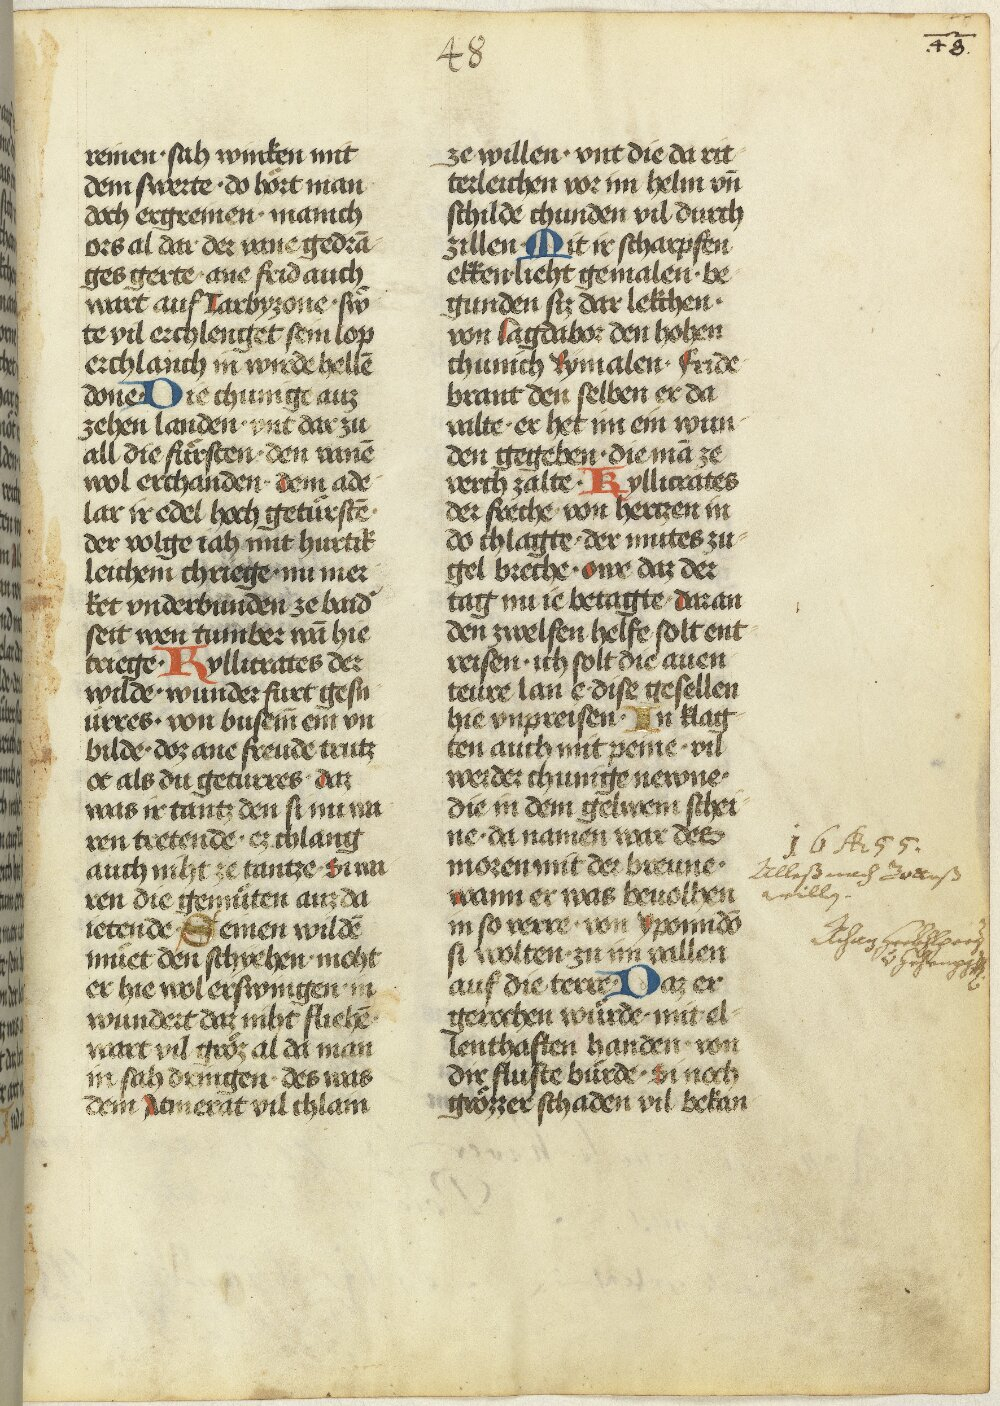 48
48
reinen · sah winken mit
dem swerte · do hört man
doch ergreinen · manich
ors al dar der vane gedrā¬
ges gerte · ane frid auch
wart auf Tarbyzone · swͦ
te vil erchlenget sein lop
erchlanch in wirde hellē
done · Die chunige auz
zehen landen · vnt dar zu
all die fürsten · den vanē
wol erchanden · dem ade¬
lar ir edel hoch getürstē ·
der volge iah mit hurtik
leichem chriege · nu mer¬
ket vnderbunden ze baid
seit wen tumber wā hie
triege · Kyllicrates der
wilde · wunder furt gesn
ürres · von busein ein vn
bilde · doz ane freude trutz
ot als du geturres · daz
was ir tantz den si nu wa
ren tretende · ez chlang
auch niht ze tantze · Si wa
ren die gemüten auz da
ietende · Seinen wildē
müet den schrehen · moht
er hie wol erswingen · in
wundert daz niht fliehē ·
wart vil gröz al da man
in sah dringen · des was
dem Atmerāt vil chlain
ze willen · vnt die da rit¬
terleichen vor im helm vn̄
schilde chunden vil durch
zillen · Mit ir scharpfen
ekken lieht gemalen · be¬
gunden siz dar lekchen ·
von Sagdabor den hohen
chunich Tymalen · Fride¬
brant den selben er da
valte · er het im ein wun¬
den gegeben · die mā ze
verch zalte · Kyllicrates
der freche · von hertzen in
do chlagte · der mutes zu¬
gel breche · owe daz der
tag nu ie betagte · daran
den zwelfen helfe solt ent¬
reisen · ich solt die auen¬
teure lan e · dise gesellen
hie vnpreisen · In klag¬
ten auch mit peine · vil
werder chunige newne ·
die in dem gelwem schei¬
ne · da namen war des
moren mit der breune ·
wann er was beuolhen
in so verre · von Yponidō
si wolten · zu im vallen
auf die terre · Daz er
gerochen würde · mit el¬
lenthaften handen · von
dir fluste bürde · Si noch
grözzer schaden vil bekan
16 55.